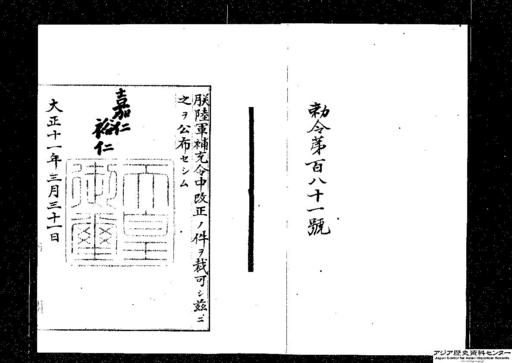 勅令第百八十一號
朕陸軍補充令中改正ノ件ヲ裁可シ茲ニ
之ヲ公布セシム
嘉仁
裕仁
天皇
御璽
大正十一年三月三十一日
アジア歴史資料センター
Japan Center for Asian Historical Records